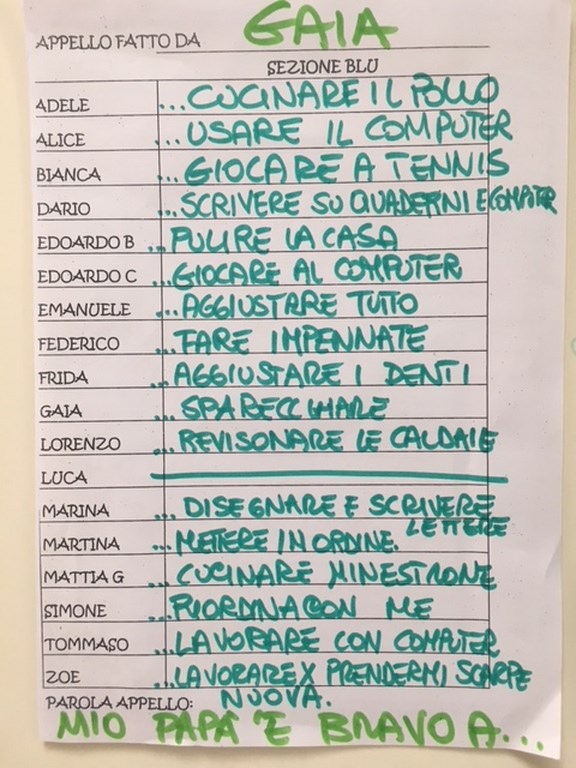 APPELLO FATTO DA GAIA
SEZIONE BLU
ADELE ...CUCINARE IL POLLO
ALICE ...USARE IL COMPUTER
BIANCA ...GIOCARE A TENNIS
DARIO ...SCRIVERE SU QUADERNI E COMPUTER
EDOARDO B ...PULIRE LA CASA
EDOARDO C ...GIOCARE AL COMPUTER
EMANUELE ...AGGIUSTARE TUTTO
FEDERICO ...FARE IMPENNATE
FRIDA ...AGGIUSTARE I DENTI
GAIA ...SPARECCHIARE
LORENZO ...REVISONARE LE CALDAIE
LUCA
MARINA ...DISEGNARE E SCRIVERE
LETTERE
MARTINA ...METTERE IN ORDINE.
MATTIA G ...CUCINARE MINESTRONE
SIMONE ...RIORDINA CON ME
TOMMASO ...LAVORARE CON COMPUTER
ZOE ...LAVORARE X PRENDERMI SCARPE
NUOVA.
PAROLA APPELLO:
MIO PAPA' E' BRAVO A...